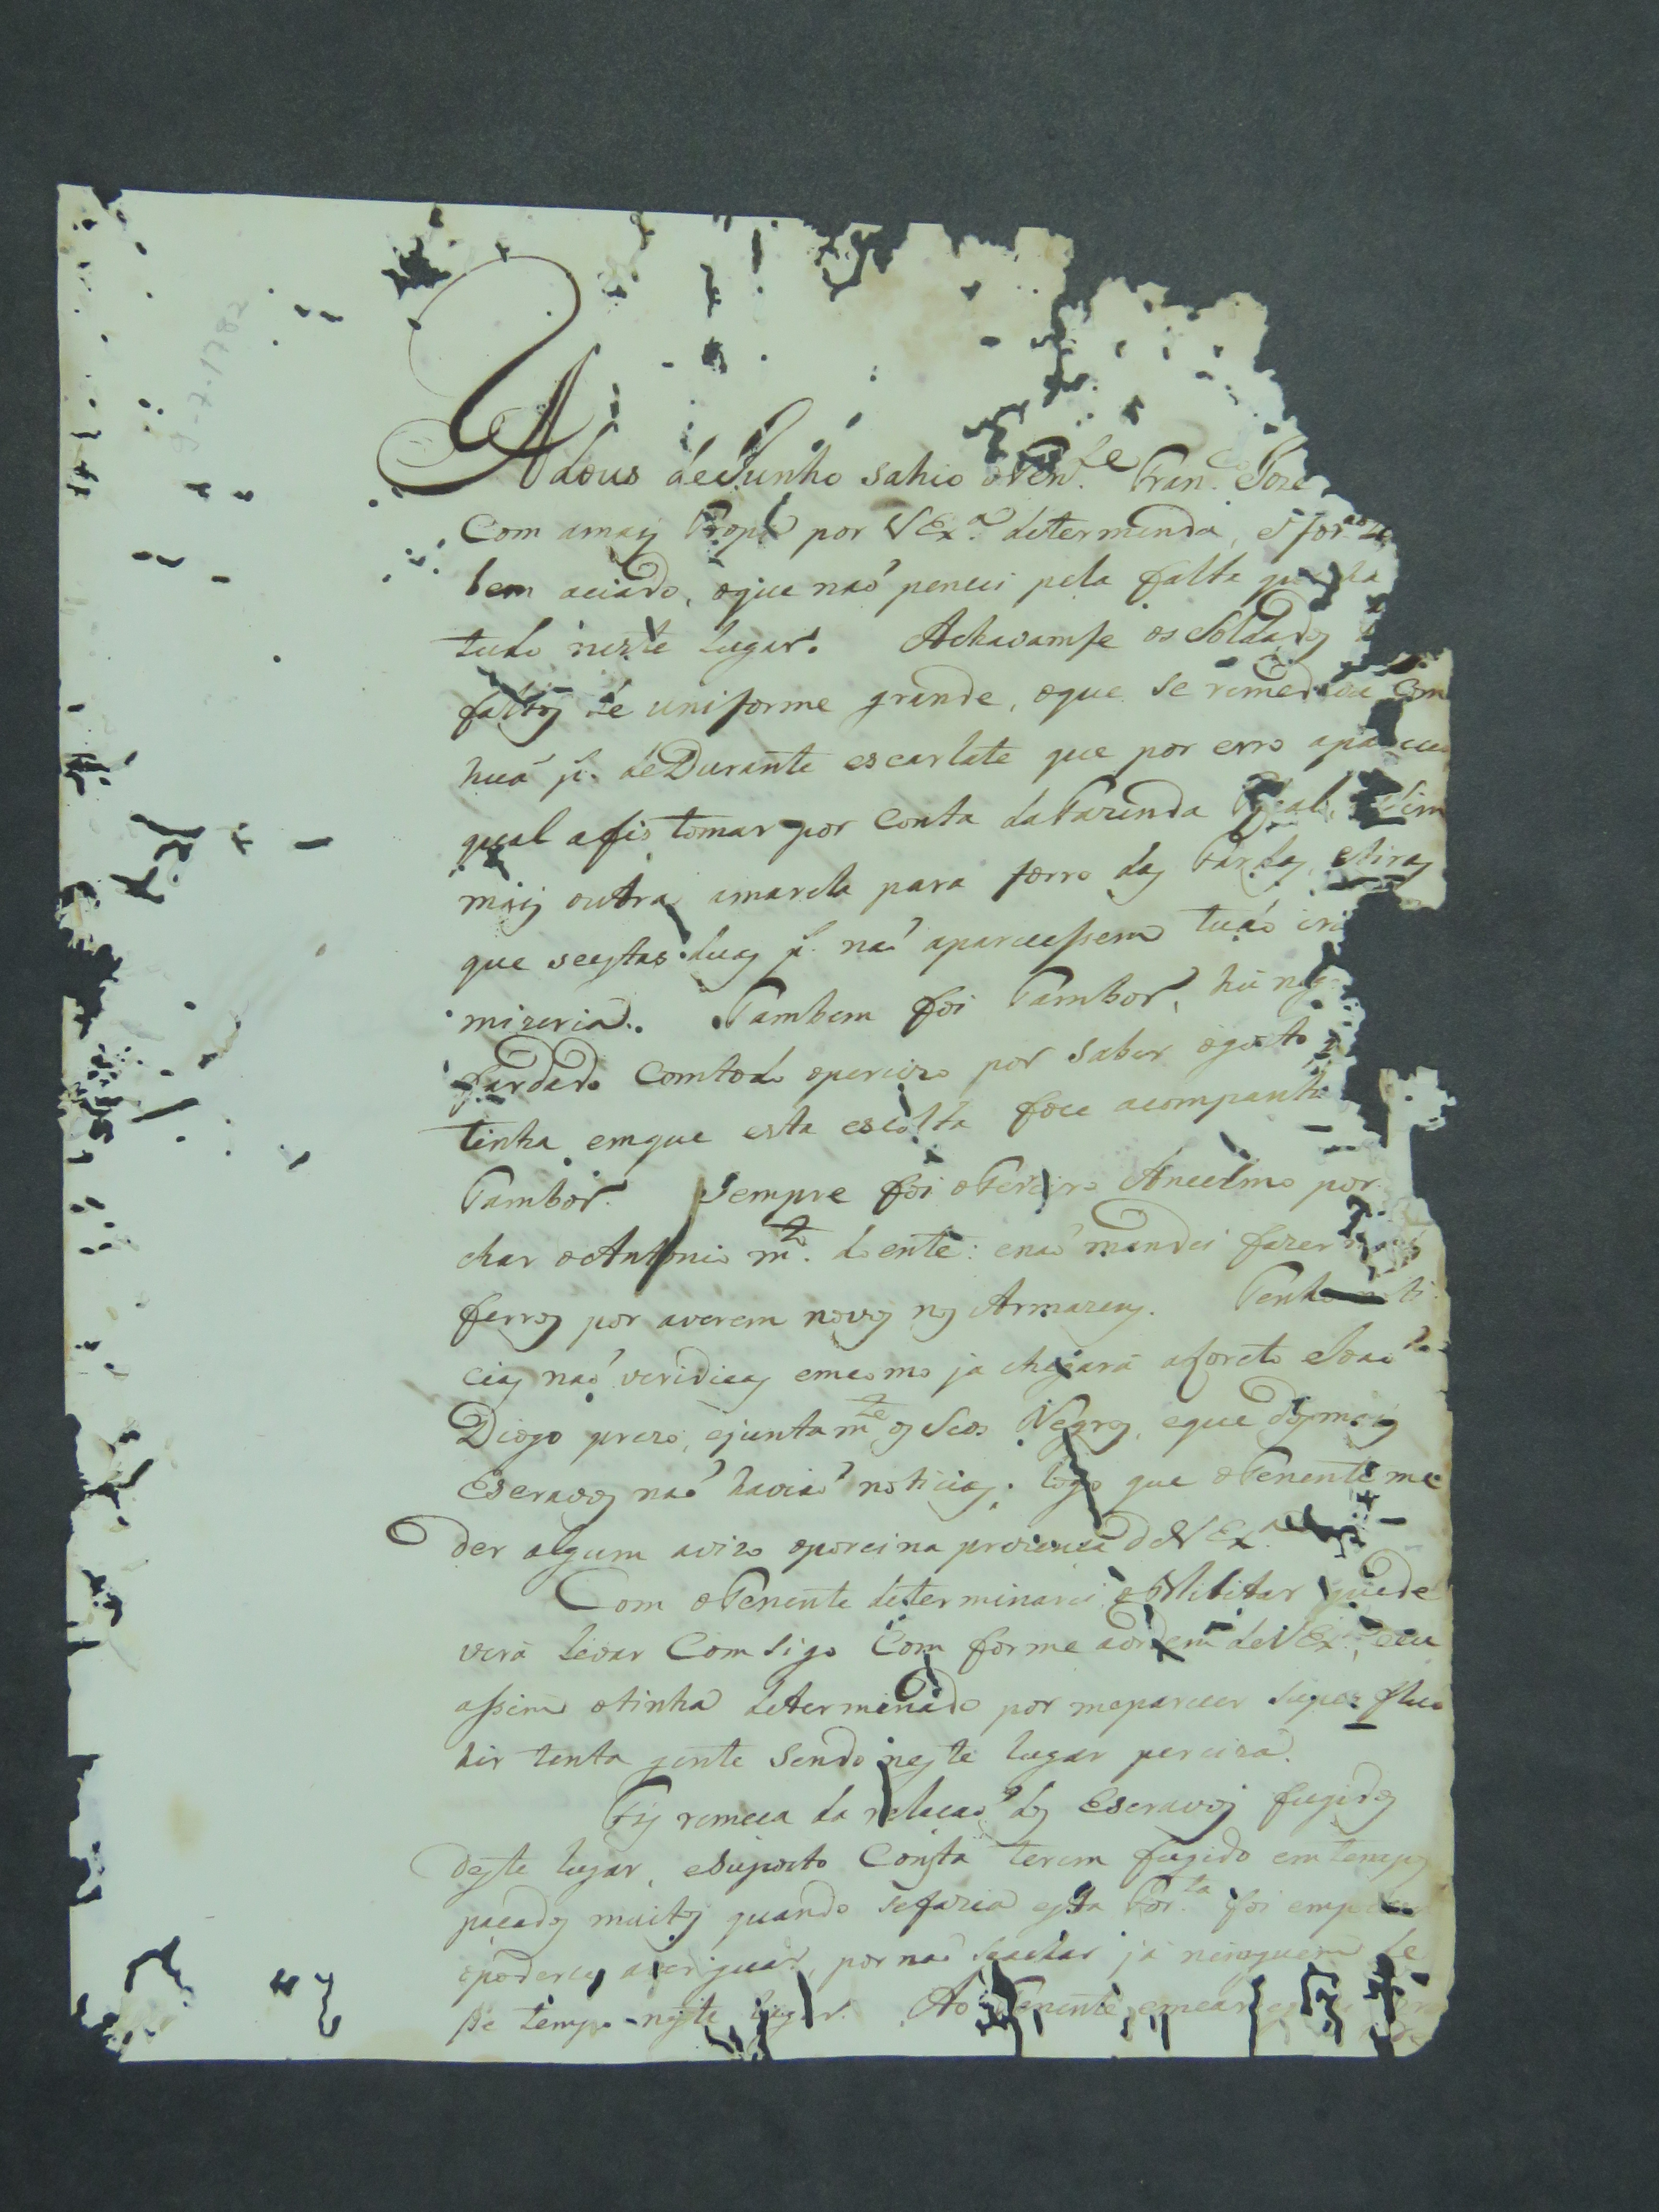 9-7-1782
A dous de Junho sahio o Ten.te Fran.co Joze
Com a mais Trop.a por V Ex.a determinda, e foraõ
bem aciado, o que naõ pencei pela falta que ha
tudo neste lugar. Achavamse os Soldados
faltos de uniforme grande, o que se remediou Com
huã p. de Durante escarlate que por erro apareceu
qual a fis tomar por Conta da Fazenda Real,
mais outra amarela para forro das Fardas, e tiras
que se estas duas p. naõ aparecessem tudo
mizeria. Tambem foi Tambor, hũ
fardado Com todo o percizo por saber o gosto
tinha em que esta escolta foce acompanh
Tambor. Sempre foi o Terceiro Ancelmo por
char o Antonio M.el doente: e naõ mandei fazer
ferros por averem novos nos Armazens. Tenho noti
cias naõ veridicas em como ja chegará a Loreto Joaõ
Diogo prezo, e junta m.te os Seos Negros, e que dos mais
Escravos naõ haviaõ noticias; logo que o Tenente me
der algum avizo o porei na prezença de V Ex.a
Com o Tenente determinarei o Militar que de
verá levar Com sigo Com forme a ordem de V Ex.a, e eu
assim o tinha determinado por me parecer Super fluo
hir tenta gente Sendo neste lugar perciza.
Fis remeca da relacaõ dos Escravos fugidos
deste lugar, e Suposto Consta terem fugido em tempos
pacados muitos quando se fazia esta For.ta foi
o poderce averiguar, por naõ se achar já ninguem de
se tempo neste lugar. Ao Tenente